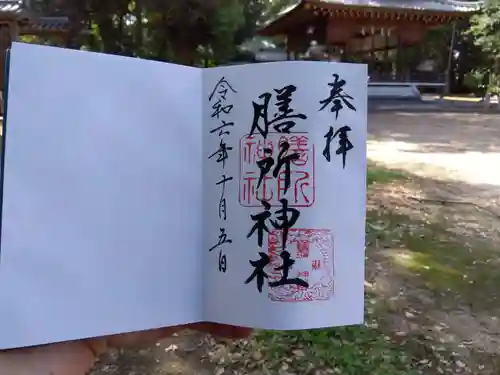 奉拝
膳所神社
令和六年十月五日
膳所
神社